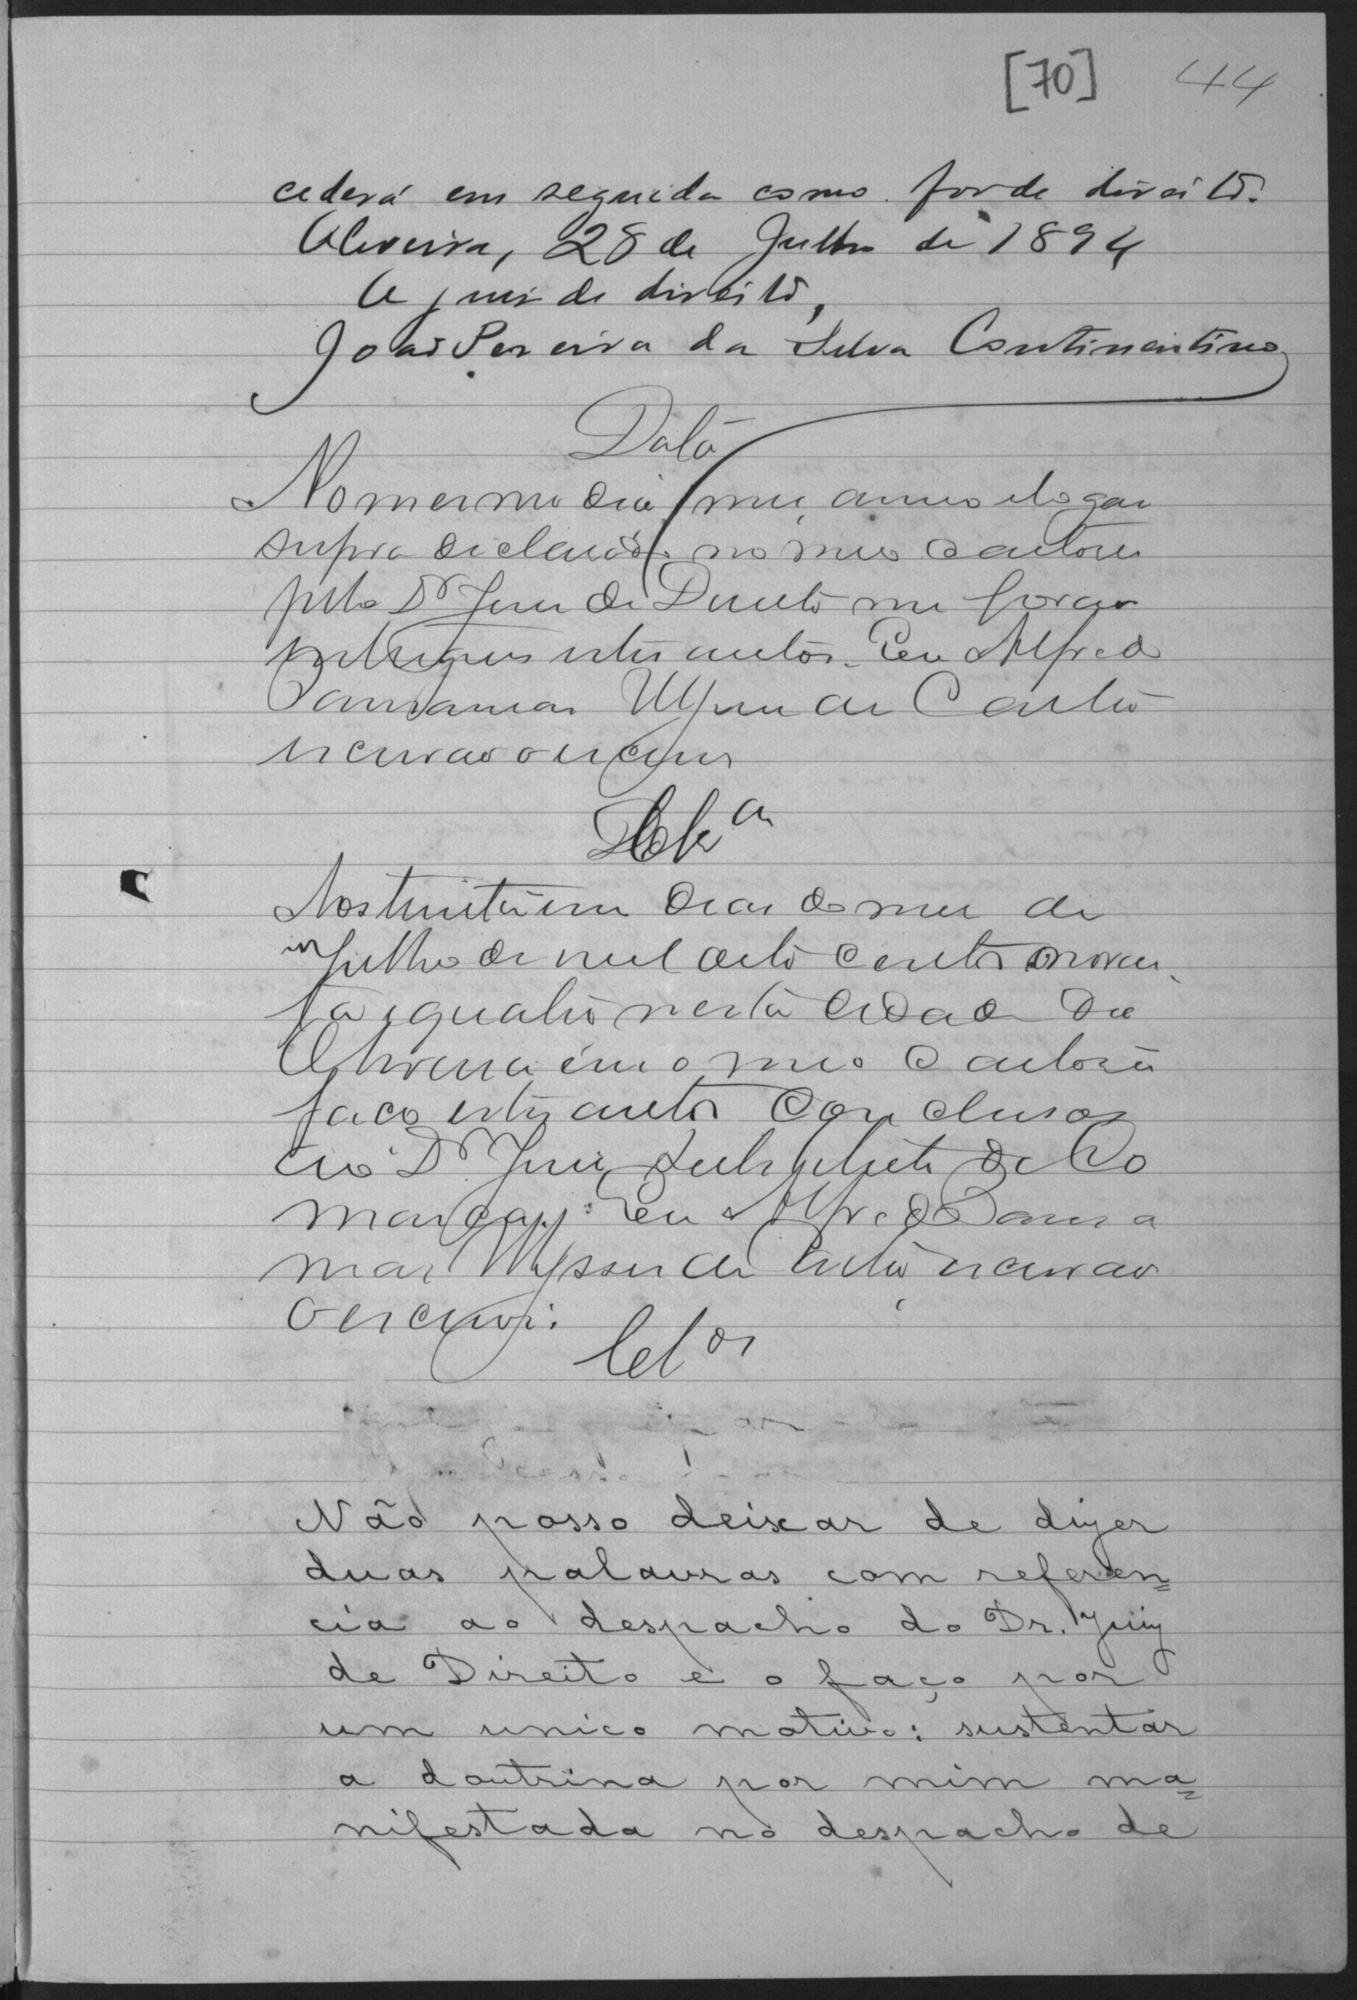 [70] 44
cederá em seguida como for de direito.
Oliveira, 28 de Julho de 1894
O juiz de direito,
João Pereira da Silva Continentino
Data
No mesmo dia, mez, anno e logar
supra declarado no meo cartorio
pelo Dr Juiz de Direito me forão
entregues estes autos. Eu Alfredo
Ulysses de Castro
escrivão o escrevi
Clsa
Nos trinta e um dias do mez de
Julho de mil oito centos e noven-
ta e quatro nesta cidade de
Oliveira em o meo cartorio
faco estes autos conclusos
ao Dr Juiz Substituto da Co
marca. Eu Alfredo
Ulysses de Castro escrivão
o escrevi.
Clos
Não posso deixar de dizer
duas palavras com referen=
cia ao despacho do Dr. Juiz
de Direito e o faço por
um unico motivo: sustentar
a doutrina por mim ma=
nifestada no despacho de